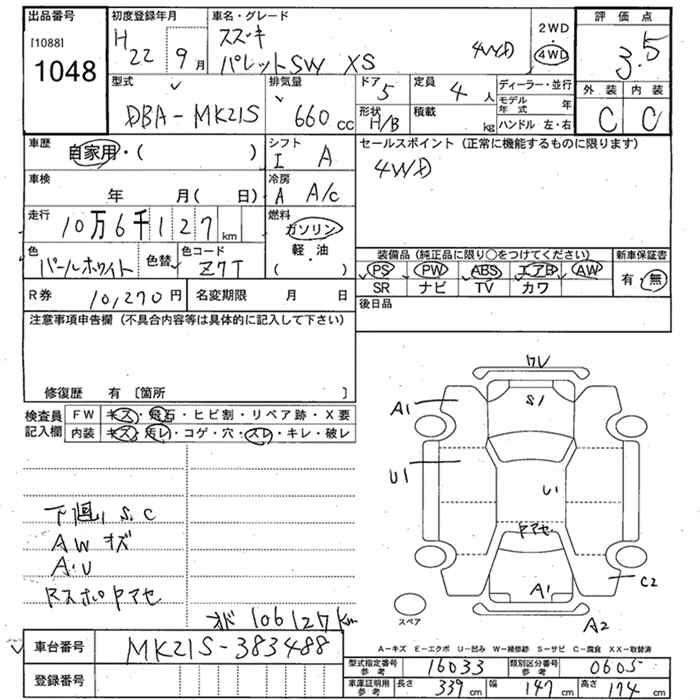 出品番号
[1088]
1048
初度登録年月
H22 9月
車名・グレード
スズキ
パレットSW XS 4WD
2WD
・
4WD
評価点
3.5
外装 内装
C C
型式
DBA-MK21S
排気量
660 CC
ドア
5
定員
4人
形状
H/B
積載
kg
ディーラー・並行
モデル年式 年
ハンドル 左・右
車歴
自家用・( )
シフト
I A
車検
年 月( 日)
冷房
A A/c
走行
10万6千127km
燃料
ガソリン
軽・油
( )
色
パールホワイト
色替
色コード
Z7T
R券 10,270円
名変期限 月 日
セールスポイント(正常に機能するものに限ります)
4WD
装備品(純正品に限り○をつけてください)
PS PW ABS エアB AW
SR ナビ TV カワ
新車保証書
有・無
後日品
注意事項申告欄(不具合内容等は具体的に記入して下さい)
修復歴 有〔箇所 〕
検査員記入欄
FW キズ・飛石・ヒビ割・リペア跡・X要
内装 キズ・汚レ・コゲ・穴・スレ・キレ・破レ
下廻り S.C
AW キズ
A.U
Rスポイヤセ
オド 106127km
ワレ
S1
A1
U1
U1
ヤマセ
A1
C2
A2
スペア
車台番号 MK21S-383488
登録番号
A-キズ E-エクボ U-凹み W-補修跡 S-サビ C-腐食 XX-取替済
型式指定番号 参考 16033
類別区分番号 参考 0605
車庫証明用 参考 長さ 339cm 幅 147cm 高さ 174cm